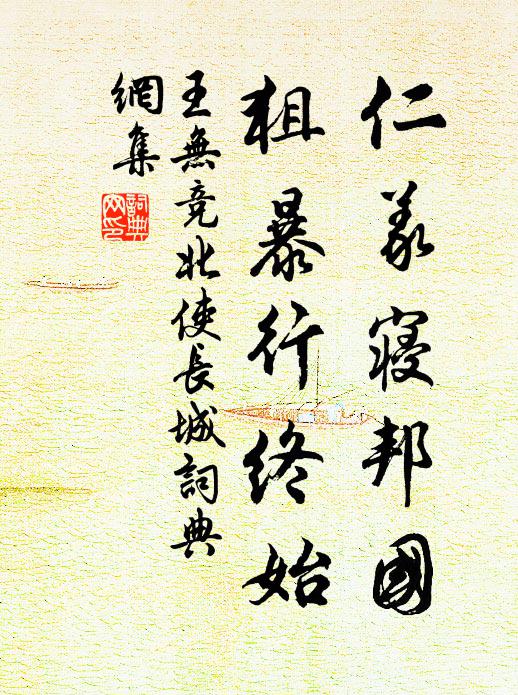 仁義寢邦國
粗暴行終始
王無竞北使長城詞典
網集
詞典
网印